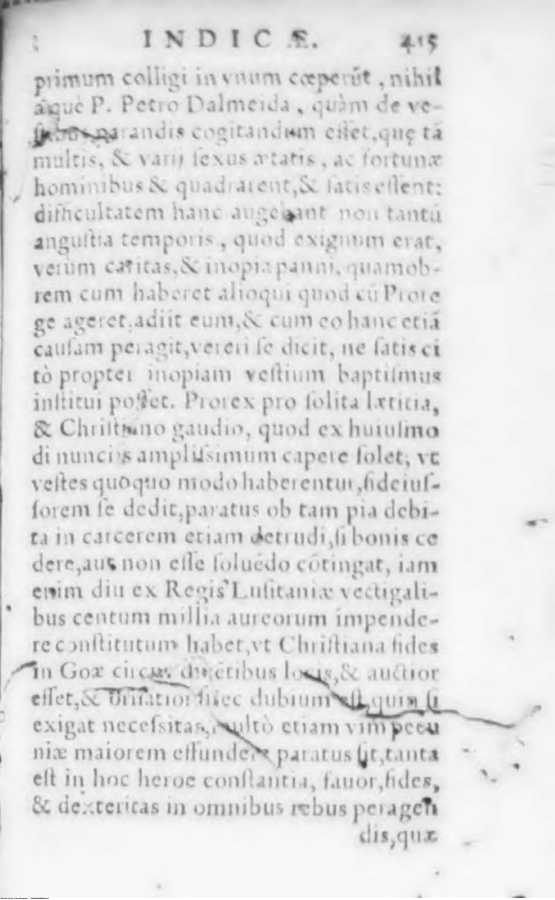 INDICÆ. 415
primum colligi in vnum cœperūt, nihil
aequè P. Petro Dalmeida, quàm de ve-
parandis cogitandum esset, quę tā
multis, & varij sexus ætatis, ac fortunæ
hominibus & quadrarent, & satis essent:
difficultatem hanc augebant non tantū
angustia temporis, quod exiguum erat,
verùm caritas, & inopia panni, quamob-
rem cum haberet alioqui quod cū Prore
ge ageret, adiit eum, & cum eo hanc etiā
causam peragit, vereri se dicit, ne satis ci
tò propter inopiam vestium baptismus
institui posset. Prorex pro solita lætitia,
& Christiano gaudio, quod ex huiusmo
di nuncijs amplissimum capere solet, vt
vestes quoquo modo haberentur, fideius-
sorem se dedit, paratus ob tam pia debi-
ta in carcerem etiam detrudi, si bonis ce
dere, aut non esse soluēdo cōtingat, iam
enim diu ex Regis Lusitaniæ vectigali-
bus centum millia aureorum impende-
re constitutum habet, vt Christiana fides
in Goæ locis, & auctior
esset, & ornatior: nec dubium est, quin si
exigat necessitas, multò etiam vim pecu
niæ maiorem effundere paratus sit, tanta
est in hoc heroe constantia, fauor, fides,
& dexteritas in omnibus rebus peragen
dis, quæ